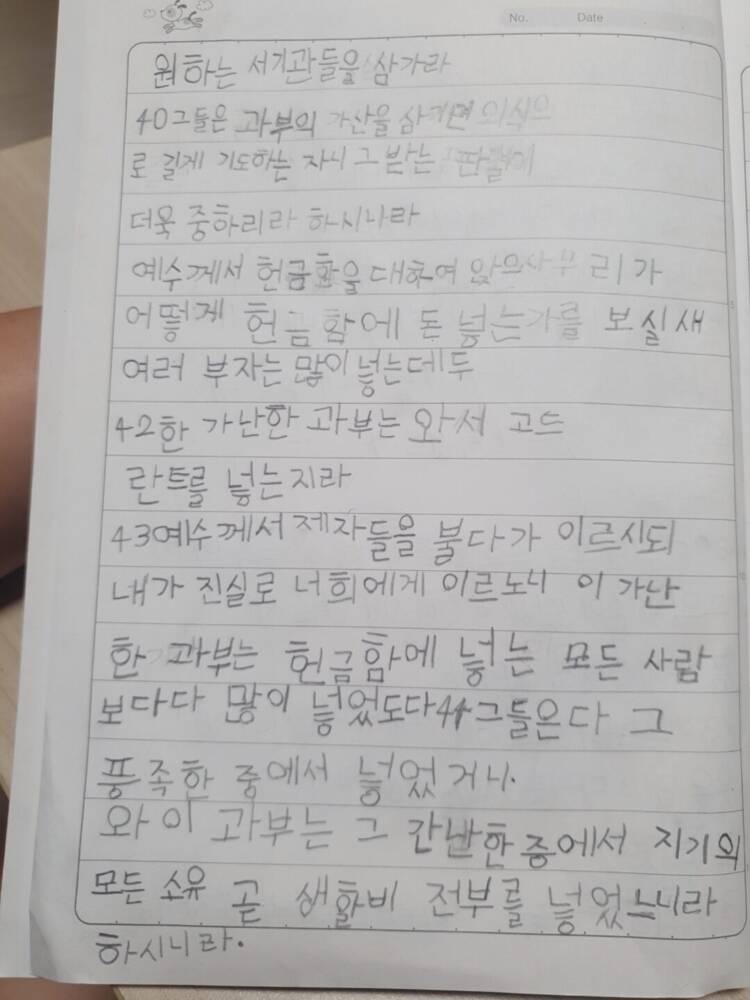 No. Date
원하는 서기관들을 삼가라
40그들은 과부의 가산을 삼키면 의식으
로 길게 기도하는 자니 그 받는 판결이
더욱 중하리라 하시니라
예수께서 헌금함을 대하여 앉으사 무리가
어떻게 헌금함에 돈 넣는가를 보실새
여러 부자는 많이 넣는데두
42한 가난한 과부는 와서 고드
란트를 넣는지라
43예수께서 제자들을 불다가 이르시되
내가 진실로 너희에게 이르노니 이 가난
한 과부는 헌금함에 넣는 모든 사람
보다다 많이 넣었도다44그들은다 그
풍족한 중에서 넣었거니.
와 이 과부는 그 간난한중에서 지기의
모든 소유 곧 생활비 전부를 넣었느니라
하시니라.